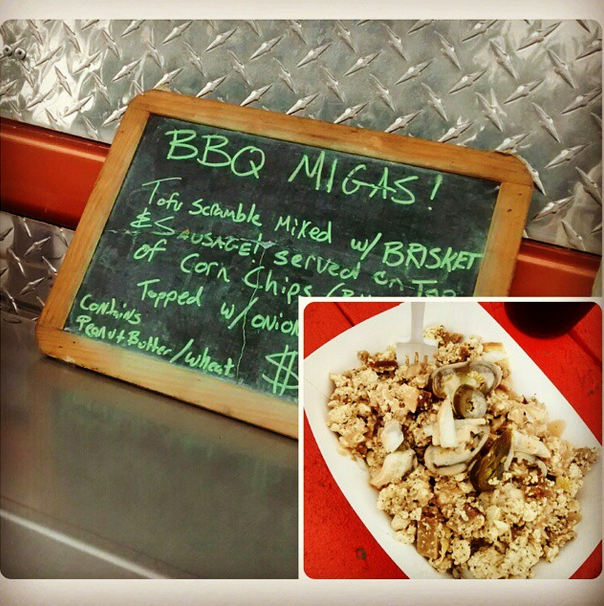 BBQ MIGAS!
Tofu Scramble Mixed w/ BRISKET
& SAUSAGE! served on Top
of Corn Chips
Topped w/ onion
Contains
Peanut Butter/wheat
$